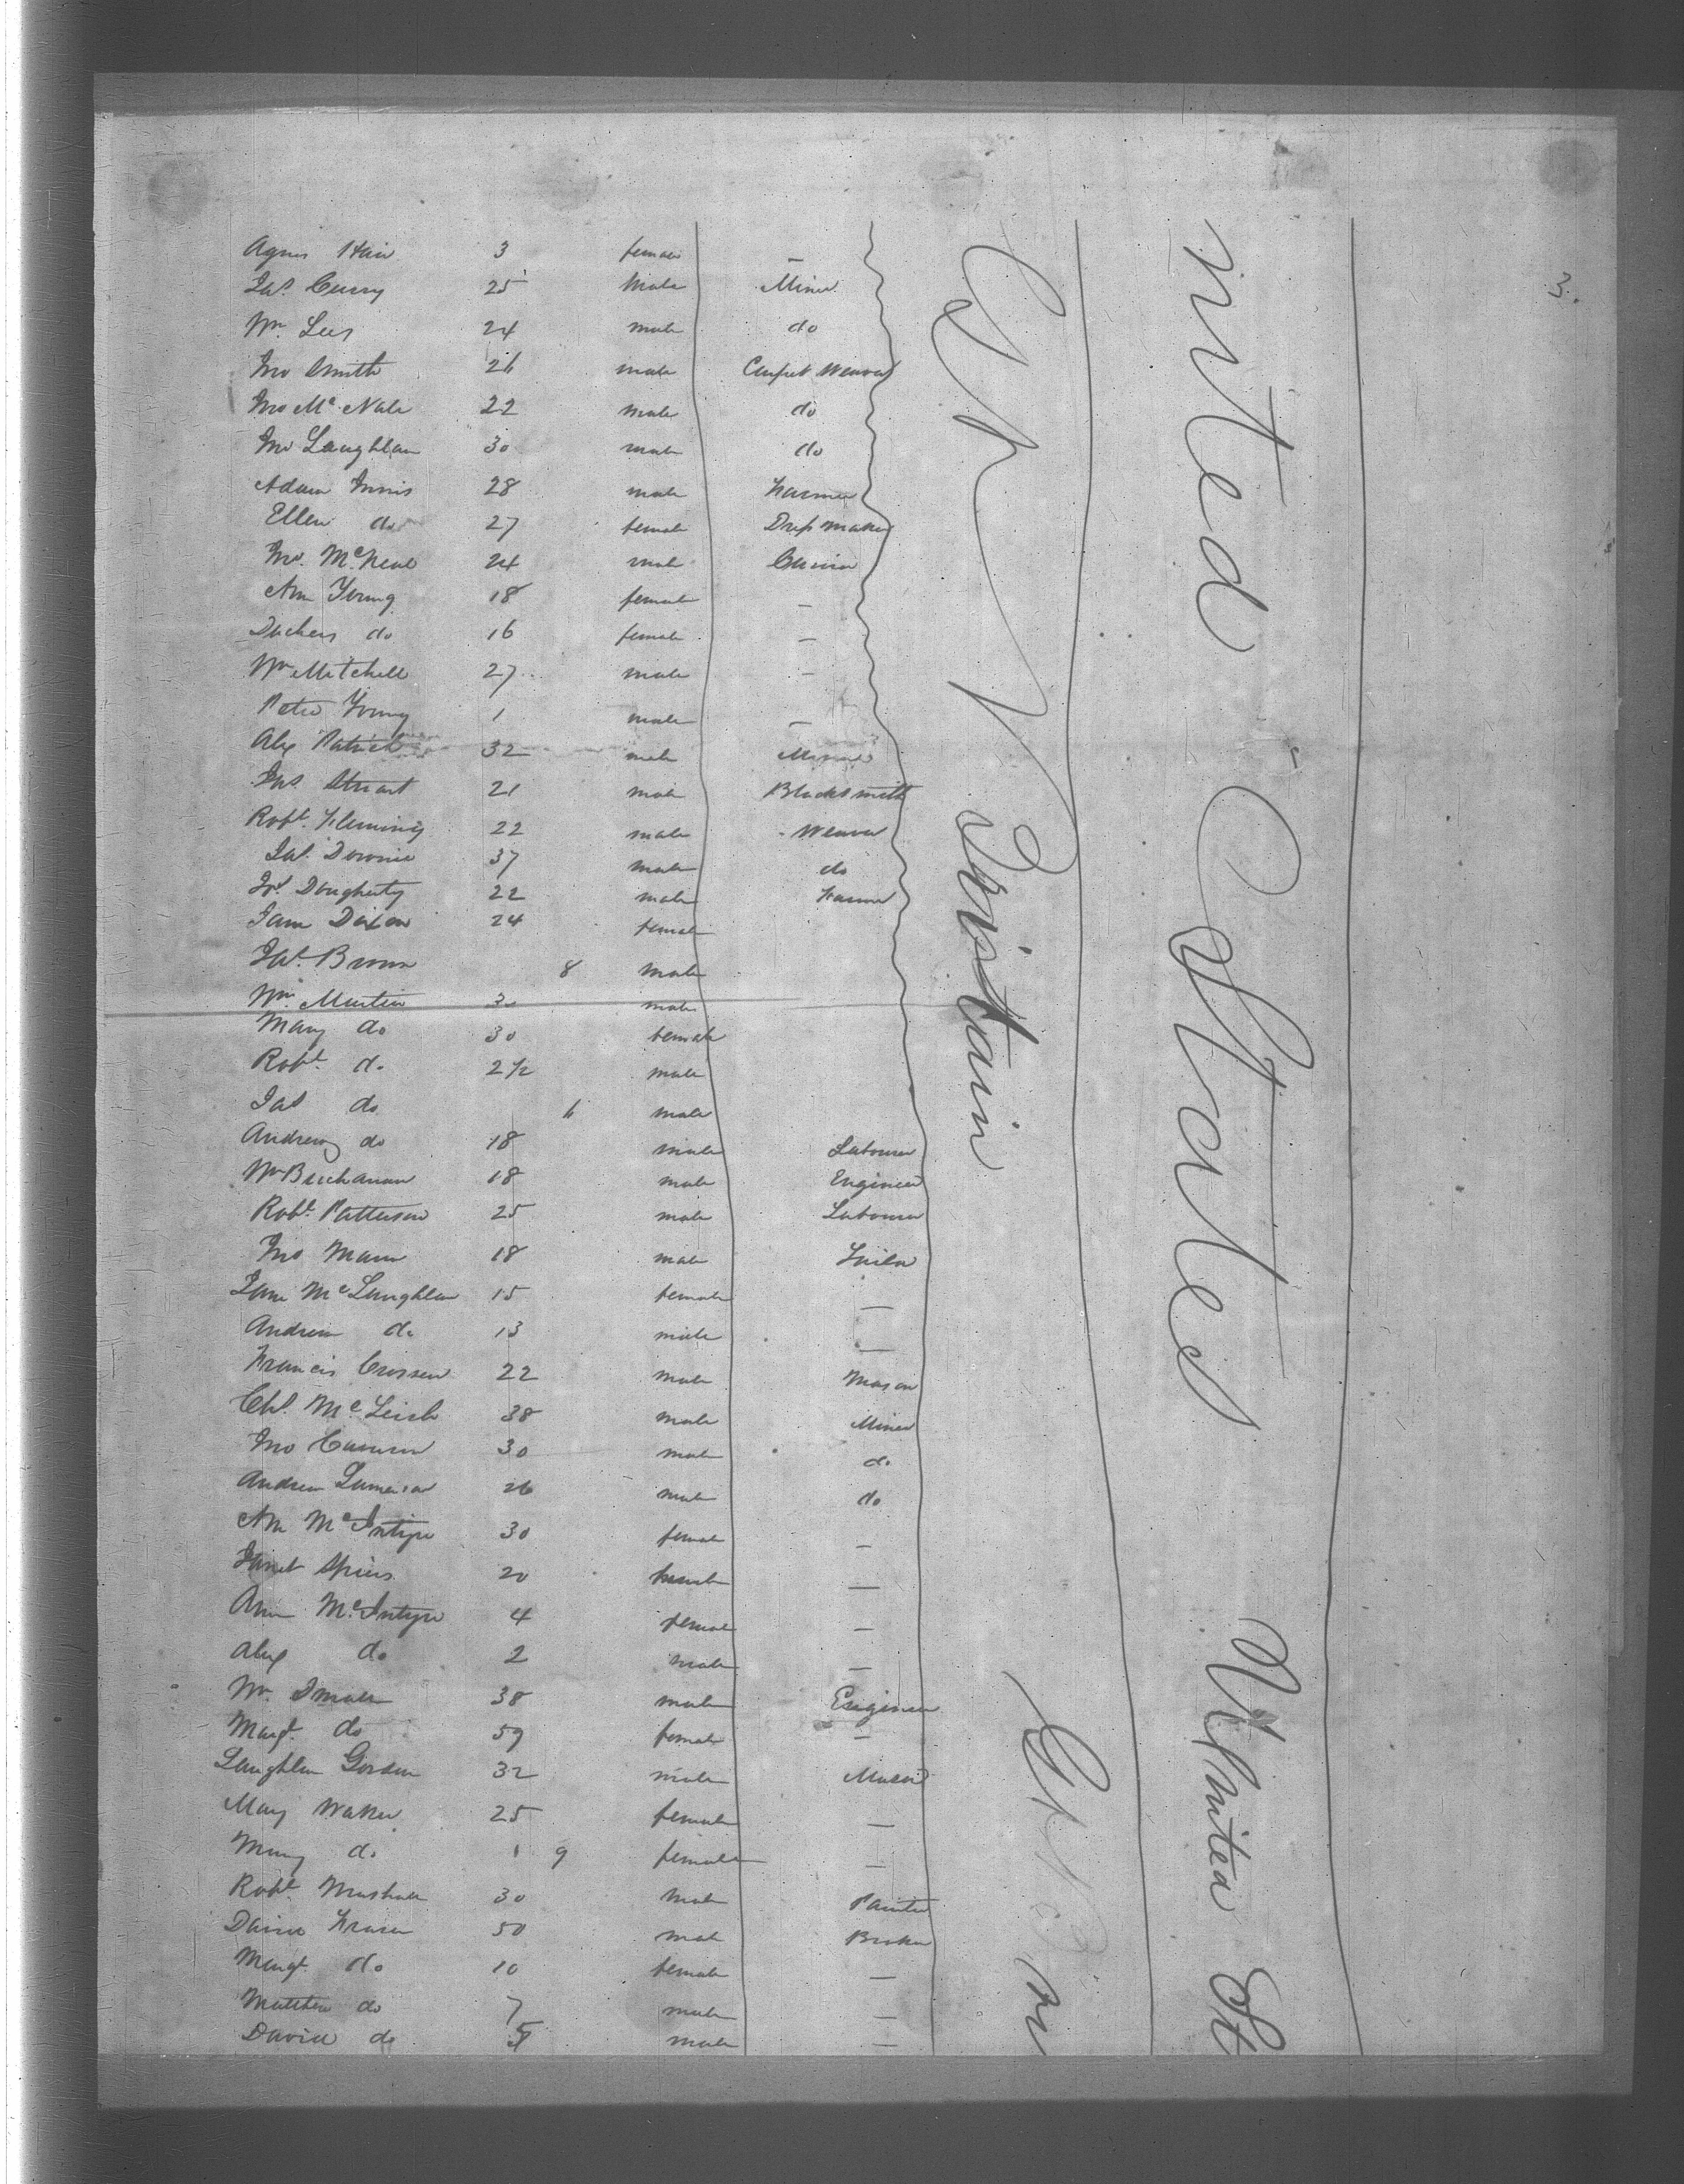 3.
Agnes Hair 3 female —
Jas. Curry 25 Male Miner
Wm Lees 24 male do
Jno Smith 26 male Carpet Weaver
Jno Mc Nale 22 male do
Jno Laughlan 30 male do
Adam Innis 28 male Farmer
Ellen do 27 female Dress maker
Jno. McNeal 24 male
Ann Young 18 female —
Duchess do 16 female —
Wm Mitchell 27 male —
Peter Young 1 male —
Alex Patrick 32 male Miner
Jas. Stuart 21 male Blacksmith
Robt. Fleming 22 male Weaver
Jas. Downie 37 male do
Jas. Dougherty 22 male Farmer
Jane Dixon 24 female
Jas. Brown 8 male
Wm. Martin 30 male
Mary do 30 female
Robt. do 2 1/2 male
Jas do 6 male
Andrew do 18 male Labourer
Wm Buchanan 18 male Engineer
Robt. Patterson 25 male Labourer
Jno Mann 18 male
Jane McLaughlan 15 female —
Andrew do 13 male —
Francis Crossen 22 male Mason
Chs. McLeish 38 male Miner
Jno Cameron 30 male do
Andrew 26 male do
Ann McIntyre 30 female —
Janet Spiers 20 female —
Ann McIntyre 4 female —
Alex do 2 male —
Wm. Small 38 male Engineer
Margt. do 59 female —
Laughlan Gordon 32 male
Mary Walker 25 female —
Mary do 1 9 female —
Robt. Marshall 30 male Painter
David Fraser 50 male Broker
Margt. do 10 female —
Matthew do 7 male —
David do 5 male —
Gr Britain
Gr Br
nited States
United St